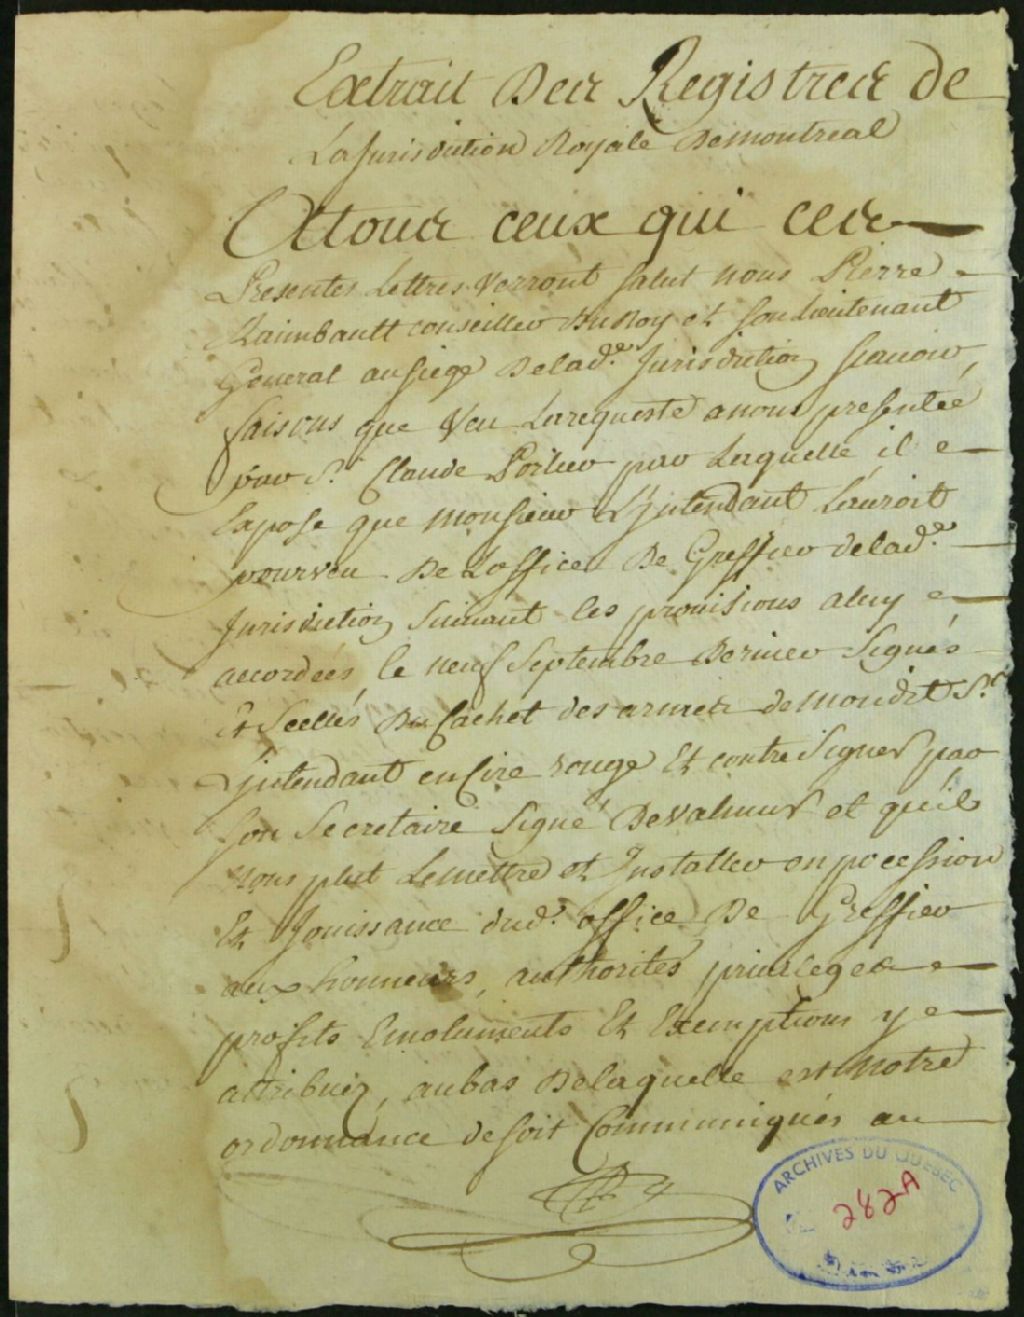 Extrait Des Registres de
La Jurisdiction Royale De montreal
A tous ceux qui ces
Presentes Lettres Verront Salut nous Pierre
Raimbault conseiller Du Roy et son Lieutenant
General au siege De lad.e Jurisdiction scauoir
faisons que Veu La requeste a nous presentée
par S.r Claude Porlier par Laquelle il
Expose que Monsieur L'jntendant Lauroit
pourveu De L'office De Greffier de lad.e
Jurisdiction suiuant les prouisions a luy
accordées le neuf Septembre Dernier Signés
Et Scellés Du Cachet des armes de mondit S.r
L'jntendant en Cire rouge Et contre Signés par
son Secretaire Signé Devalmur et qu'il
nous plut Le mettre et Jnstaller en pocession
Et Jouissance dud.t office De Greffier
aux honneurs, authorités priuileges
profits Emoluments Et Exemptions y
attribuez, au bas De laquelle est Notre
ordonnance de soit Communiqués au
ARCHIVES DU QUEBEC
282A